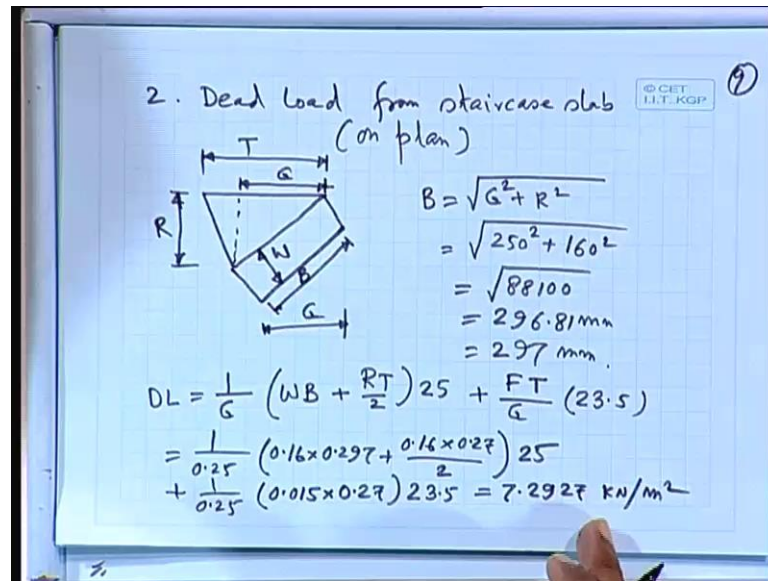 2. Dead Load from staircase slab
© CET
I.I.T. KGP
9
(on plan)
T
G
R
W
B
G
B = √G² + R²
= √250² + 160²
= √88100
= 296.81 mm
= 297 mm.
DL = 1/G (WB + RT/2) 25 + FT/G (23.5)
= 1/0.25 (0.16×0.297 + 0.16×0.27/2) 25
+ 1/0.25 (0.015×0.27) 23.5 = 7.2927 KN/m²